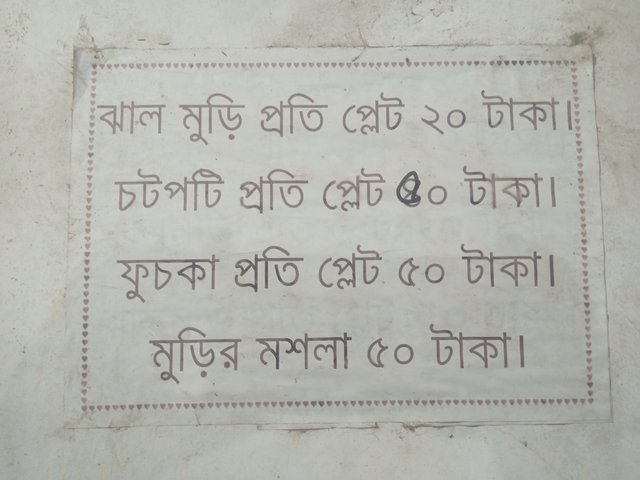 ঝাল মুড়ি প্রতি প্লেট ২০ টাকা।
চটপটি প্রতি প্লেট ৫০ টাকা।
ফুচকা প্রতি প্লেট ৫০ টাকা।
মুড়ির মশলা ৫০ টাকা।